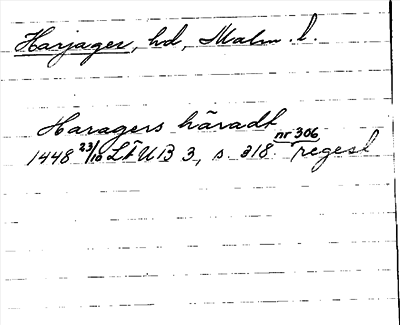 Harjager, hd, Malm. l.
Haragers häradt
nr 306
1448 23/10 LÄUB 3, s. 218. regest